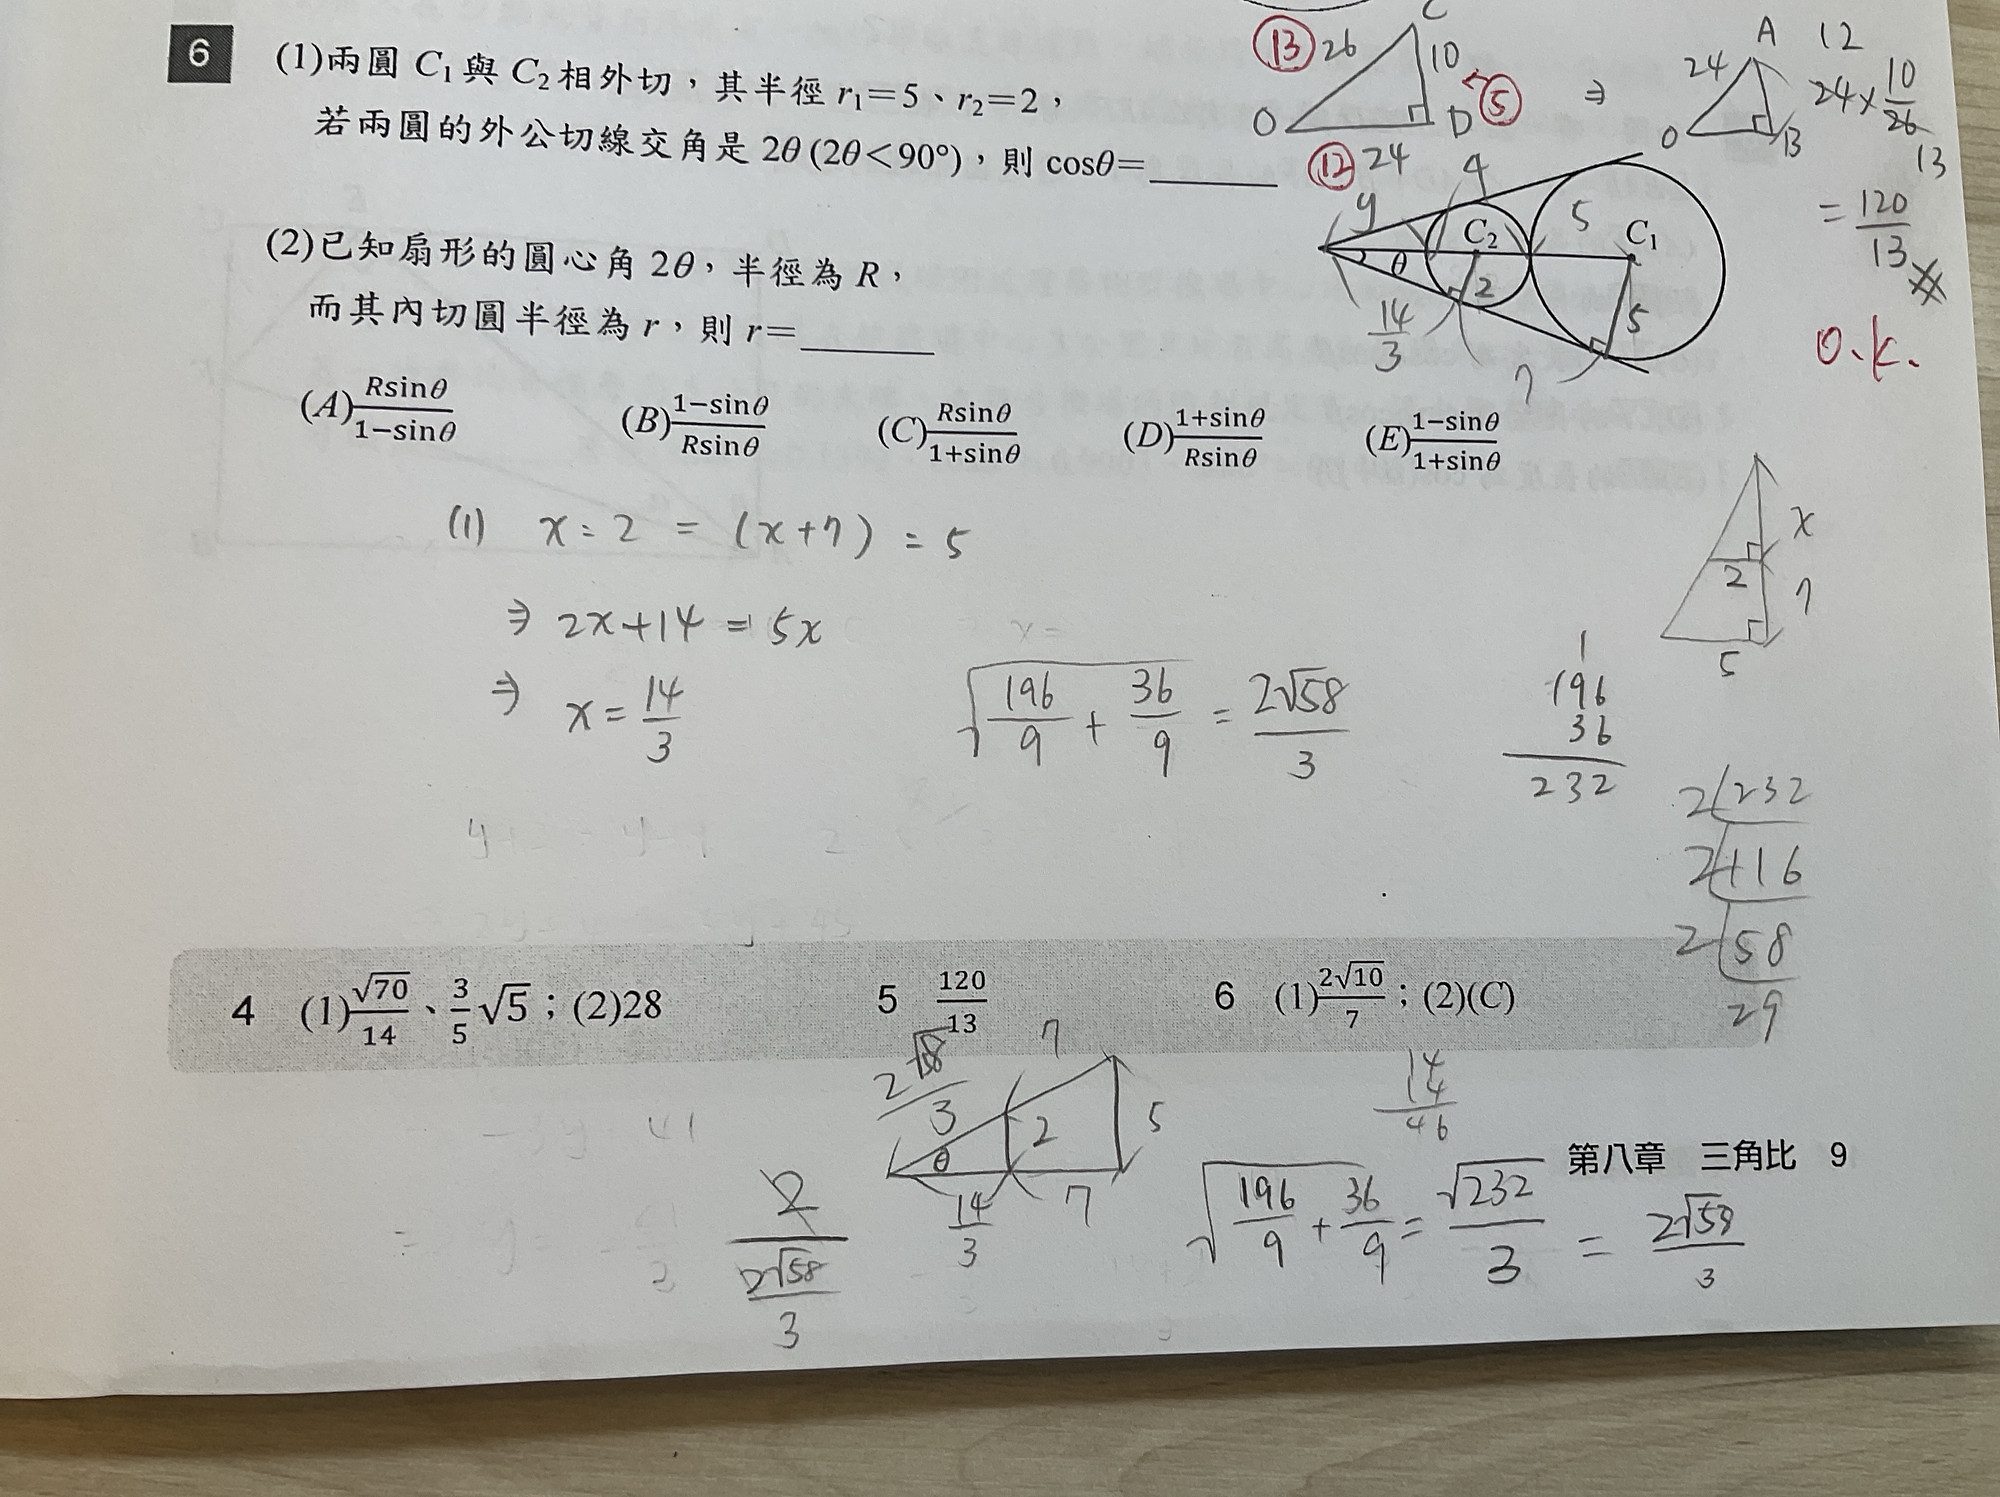 6
(1)兩圓 C₁與 C₂相外切，其半徑 r₁=5、r₂=2，
若兩圓的外公切線交角是 2θ(2θ<90°)，則 cosθ=______
(2)已知扇形的圓心角 2θ，半徑為 R，
而其內切圓半徑為 r，則 r=______
(A) Rsinθ/1−sinθ (B) 1−sinθ/Rsinθ (C) Rsinθ/1+sinθ (D) 1+sinθ/Rsinθ (E) 1−sinθ/1+sinθ
C
⑬ 26
10
⑤
O
D
⑫ 24
⇒
A
24
O
B
12
24×10/26
13
=120/13
O.K.
4
y
C₂
5
C₁
θ
2
5
14/3
7
(1) x:2 = (x+7):5
⇒ 2x+14=5x
⇒ x=14/3
√196/9+36/9=2√58/3
x
2
7
5
1
196
36
232
2 232
2 116
2 58
29
4 (1)√70/14、3/5√5；(2)28 5 120/13 6 (1)2√10/7；(2)(C)
2√58/3
7
2
5
θ
14/3
7
14
14
46
第八章 三角比 9
2
2√58/3
√196/9+36/9=√232/3=2√58/3